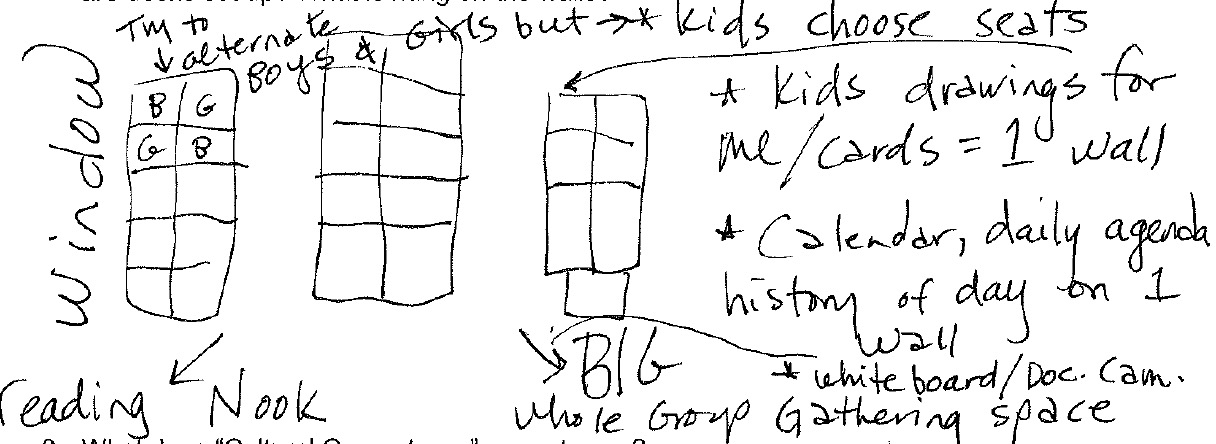 Try to
alternate
Boys & Girls but → * Kids choose seats
Window
B G
G B
* Kids drawings for
me/cards = 1 wall
* Calendar, daily agenda
history of day on 1
wall
* whiteboard/Doc. Cam.
reading Nook
BIG
whole Group Gathering space